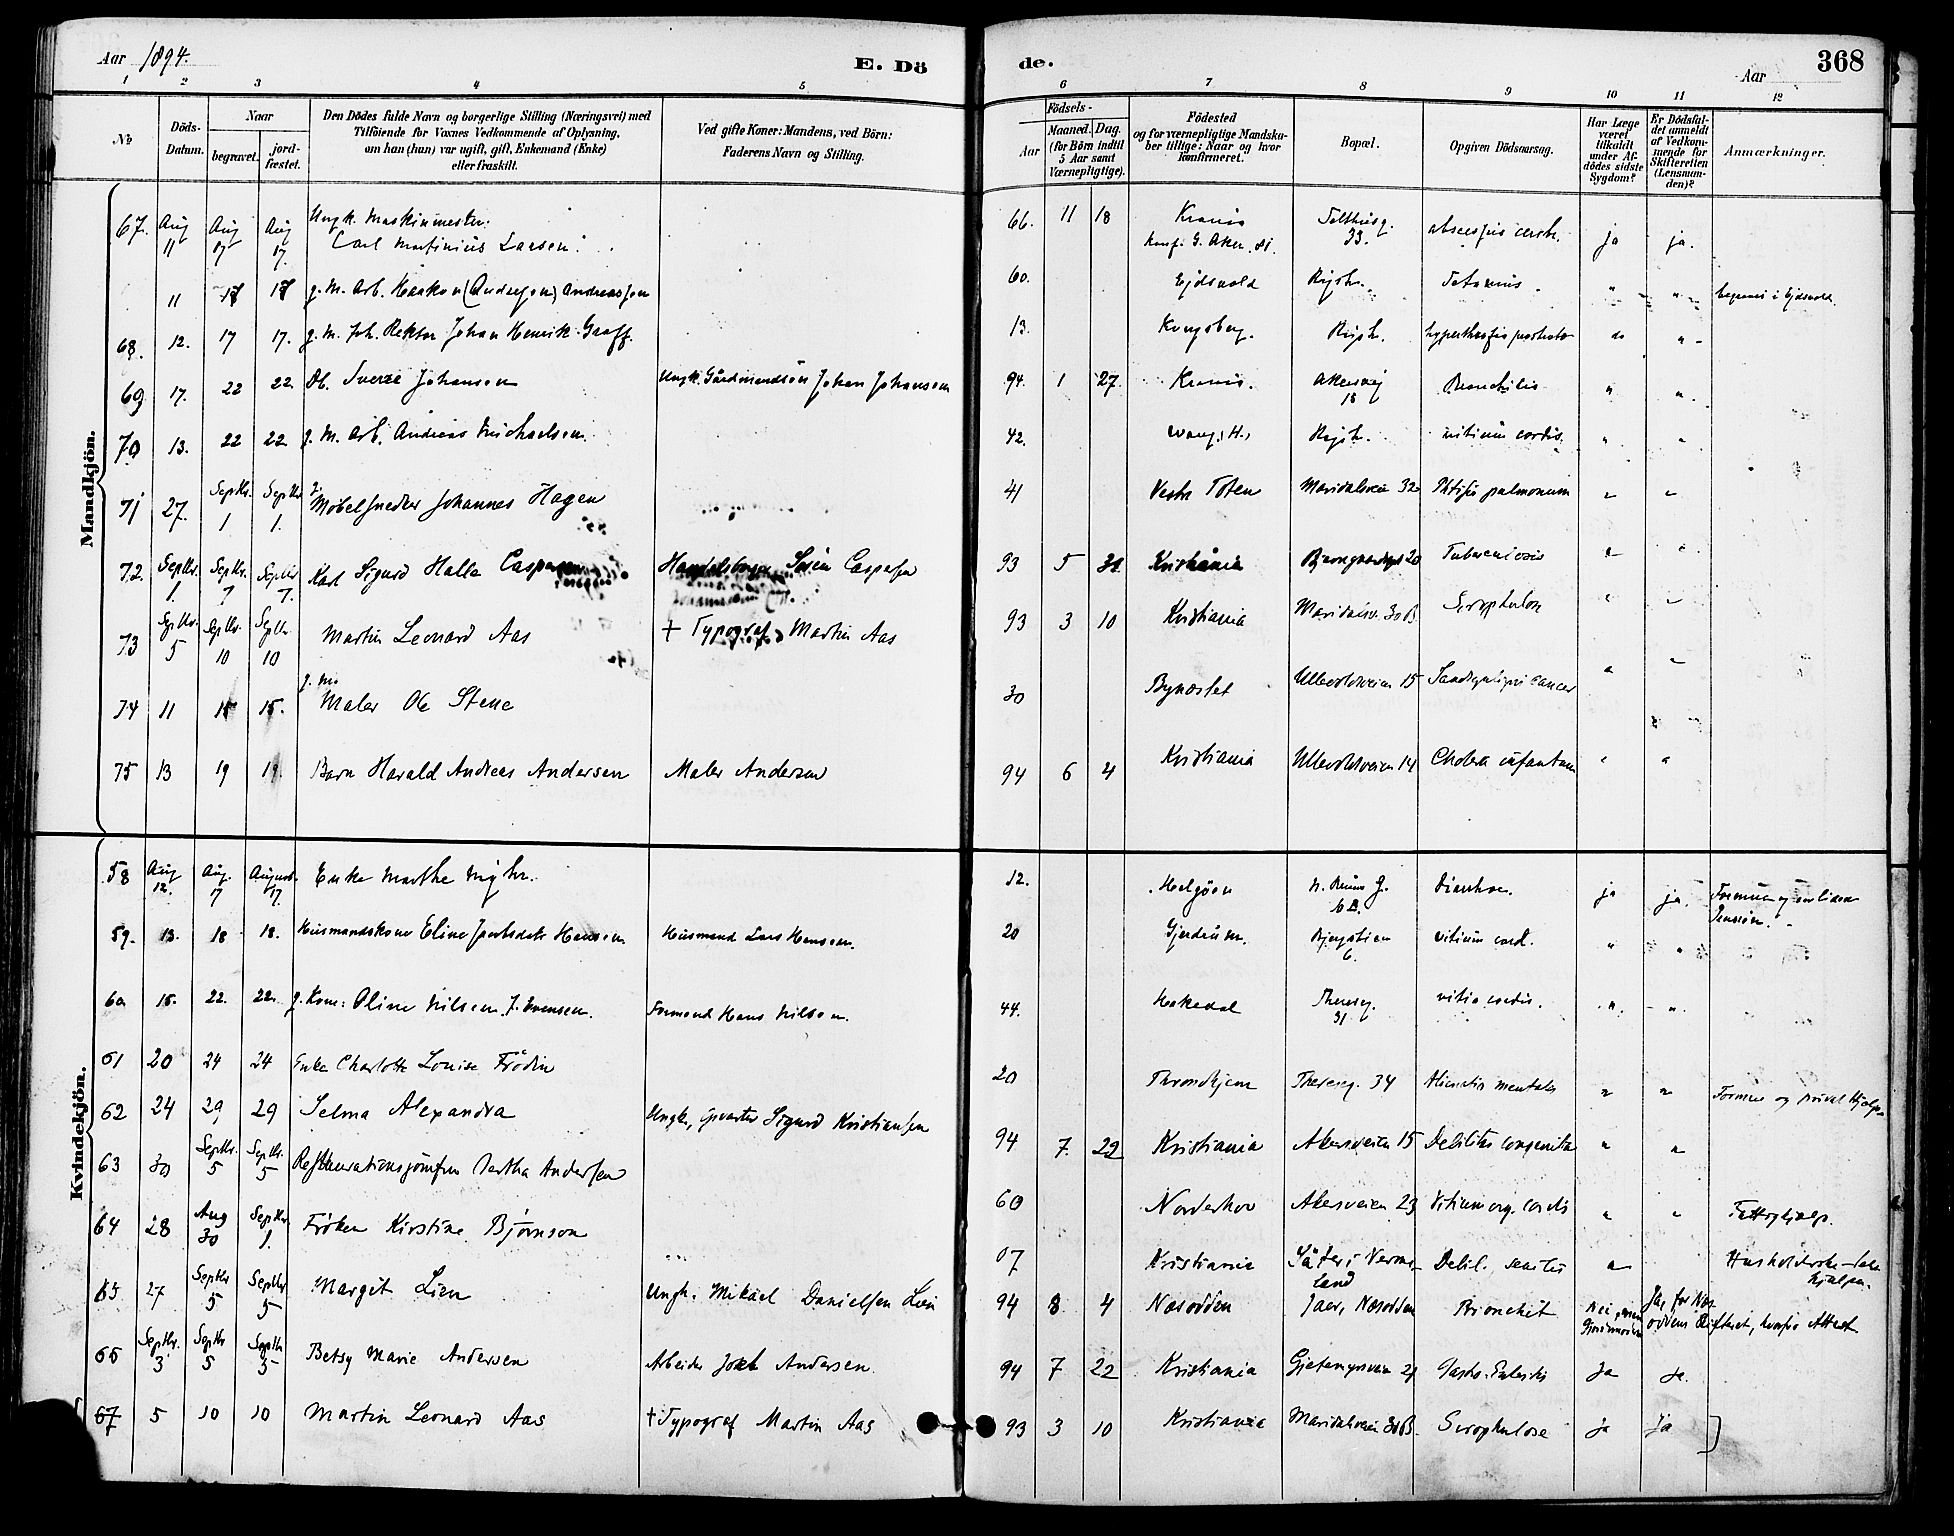 Aar 1894.
E. Dö
de.
Aar
368
1 2 3 4 5 6 7 8 9 10 11 12
No
Döds-Datum.
Naar
begravet.
jord-fæstet.
Den Dödes fulde Navn og borgerlige Stilling (Næringsvei) med
Tilföiende for Voxnes Vedkommende af Oplysning,
om han (hun) var ugift, gift, Enkemand (Enke)
eller fraskilt.
Ved gifte Koner: Mandens, ved Börn:
Faderens Navn og Stilling.
Födsels-
Aar
Maaned. Dag.
(for Börn indtil
5 Aar samt
Værnepligtige).
Födested
og for værnepligtige Mandska-
ber tillige: Naar og hvor
konfirmeret.
Bopæl.
Opgiven Dödsaarsag.
Har Læge
været
tilkaldt
under Af-
dödes sidste
Sygdom?
Er Dödsfal-
det anmeldt
af Vedkom-
mende for
Skifteretten
(Lensman-
den)?
Anmærkninger.
Mandkjön.
67. Aug 11 Aug 17 Aug 17. Ungk. Maskinmester. Carl Martinius Larsen. 66. 11 18 Krania Konf. G. Aker. 81. 33. ja ja.
11 18 18 g. M. Arb. Haakon (Andersen) Andreassen 60. Ejdsvold Rigsh. Tetanus " " begravet i Ejdsvold.
68. 12. 17 17. g. M. fh. Rektor Johan Henrik Graff. 13. Kongsberg. Rigsh. " "
69 17. 22 22. Db. Sverre Johansen Ungk. Gårdmandssön Johan Johansen 94. 1 27. Krania. Akersvej 18 Bronchitis " "
70 13. 22 22. g. M. Arb. Andreas Michaelsen. 42. Vang, H., Rigsh. vitium cordis. " "
71 27. Septbr. 1 Septbr. 1. Møbelsnedker Johannes Hagen 41 Vestre Toten Maridalsveien 32 Phtisis pulmonum " "
72. Septbr. 1. Septbr. 7 Septbr. 7. Karl Sigurd Halle Caspersen Søren Caspersen 93 5 31 Kristiania 20 Tuberculosis " "
73 Septbr. 5 Septbr. 10 Septbr. 10 Martin Leonard Aas † Typograf Martin Aas 93 3 10 Kristiania Maridalsv. 30 B. Scrophulose " "
74 11 15 15. g. M. Maler Ole Stene 30 Bynæsset Ullevoldsveien 15 cancer " "
75 13 19 19. Barn Harald Andreas Andersen Maler Andersen 94 6 4 Kristiania Ullevoldsveien 14 Cholera infantum " "
Kvindekjön.
58 Aug 12. Aug. 17 August 17. Enke Marthe Myhr. 12. Helgöen 10 B. Diarrhoe. ja ja. Formue og en liden Pension.
59. 13. 18 18. Husmandskone Eline Jacobsdatr Hansen Husmand Lars Hansen. 20 Gjerdrum. 6. vitium cord. " "
60 18. 22. 22. g. Kone: Oline Nilsen f. Svensen. Formand Hans Nilsen. 44. Hakedal Thereseg. 31 vitio cordis. " "
61 20 24 24 Enke Charlotte Louise Frödin 20 Throndhjem Thereseg. 34 Alienatio mentalis " " Formue og privat Hjælp.
62 24 29 29 Selma Alexandra Ungk., opvarter Sigurd Kristiansen 94 7. 22 Kristiania Akersveien 15 Debilitas congenita " "
63 30 Septbr. 5 Septbr. 5 Restaurationsjomfru Bertha Andersen 60 Norderhov Akersveien 23 Vitium org. cordis " " Fattighjælp.
64 28 Aug 30 Septbr. 1. Frøken Kirstine Bjørnson 07 Kristiania Säter i Vermland Debil. senilis "
65 27 Septbr 5 Septbr. 5 Margit Lien Ungk. Mikael Danielsen Lien 94 8 4 Næsodden Jaer, Næsodden Bronchit Nei, Ja, for Næsoddens Skifteret, hvorfra Attest
66 Septbr. 3 Septbr 5 Septbr 5 Betsy Marie Andersen Arbeider Andersen. 94 7 22 Kristiania Gjetemyrsveien 21 Ja Ja.
67 5 10 10 Martin Leonard Aas † Typograf Martin Aas 93 3 10 Kristiania Maridalsveien 30 B. Scrophulose ja ja